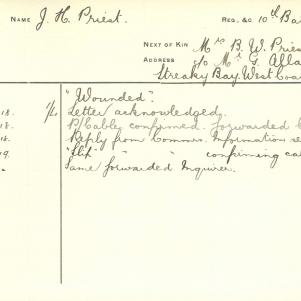 NAME J. H. Priest. REG. &C. 10th Ba
NEXT OF KIN Mrs B. W. Pries
ADDRESS c/o Mr G. Alla
Streaky Bay. West Coa
"Wounded".
18. Letter acknowledged.
18. B/Cable confirmed. forwarded
18. Reply from Commrs. Information se
19. " " confirming ca
Same forwarded Inquirer.